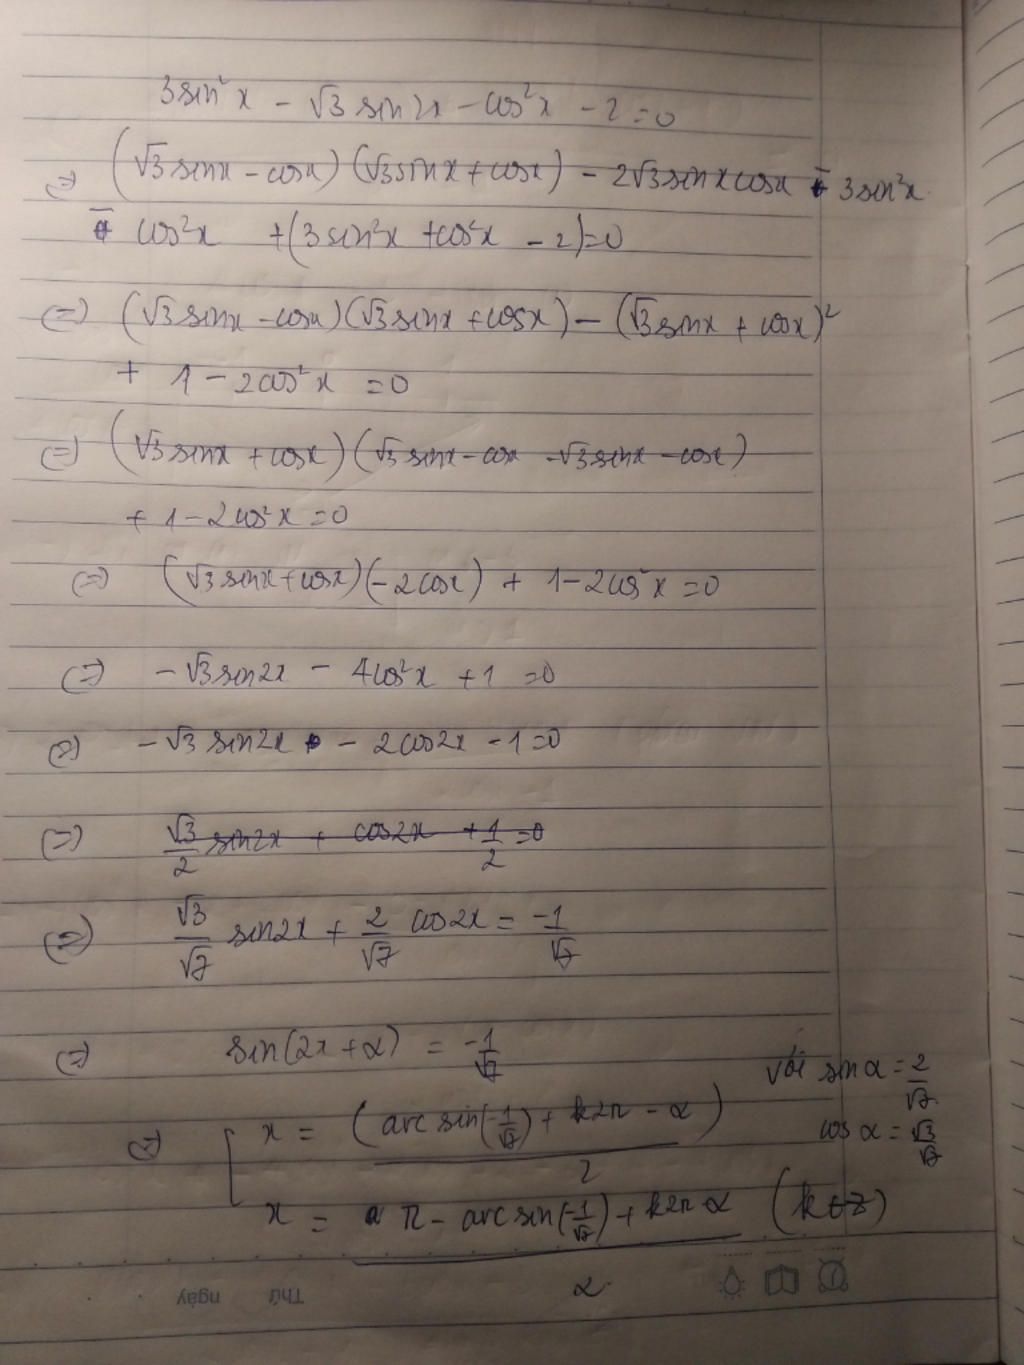 3sin²x - √3 sin2x - cos²x - 2 = 0
(=) (√3 sinx - cosx) (√3 sinx + cosx) - 2√3 sinx cosx - 3sin²x
- cos²x + (3sin²x + cos²x - 2) = 0
(=) (√3 sinx - cosx) (√3 sinx + cosx) - (√3 sinx + cosx)²
+ 1 - 2cos²x = 0
(=) (√3 sinx + cosx) (√3 sinx - cosx - √3 sinx - cosx)
+ 1 - 2cos²x = 0
(=) (√3 sinx + cosx) (-2cosx) + 1 - 2cos²x = 0
(=) -√3 sin2x - 4cos²x + 1 = 0
(=) -√3 sin2x - 2cos2x - 1 = 0
(=) √3/2 sin2x + cos2x + 1/2 = 0
(=) √3/√7 sin2x + 2/√7 cos2x = -1/√7
(=) sin(2x + α) = -1/√7 với sin α = 2/√7
cos α = √3/√7
(=) x = (arc sin(-1/√7) + k2π - α)/2
x = π - arc sin(-1/√7) + k2π - α (k ∈ Z)
2
Thứ ngày